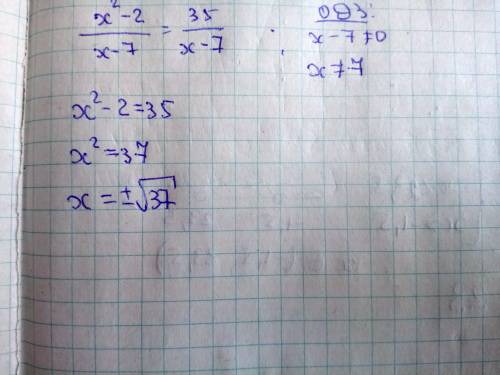 (x²-2)/(x-7) = 35/(x-7) ;
ОДЗ:
x-7≠0
x≠7
x²-2=35
x²=37
x=±√37